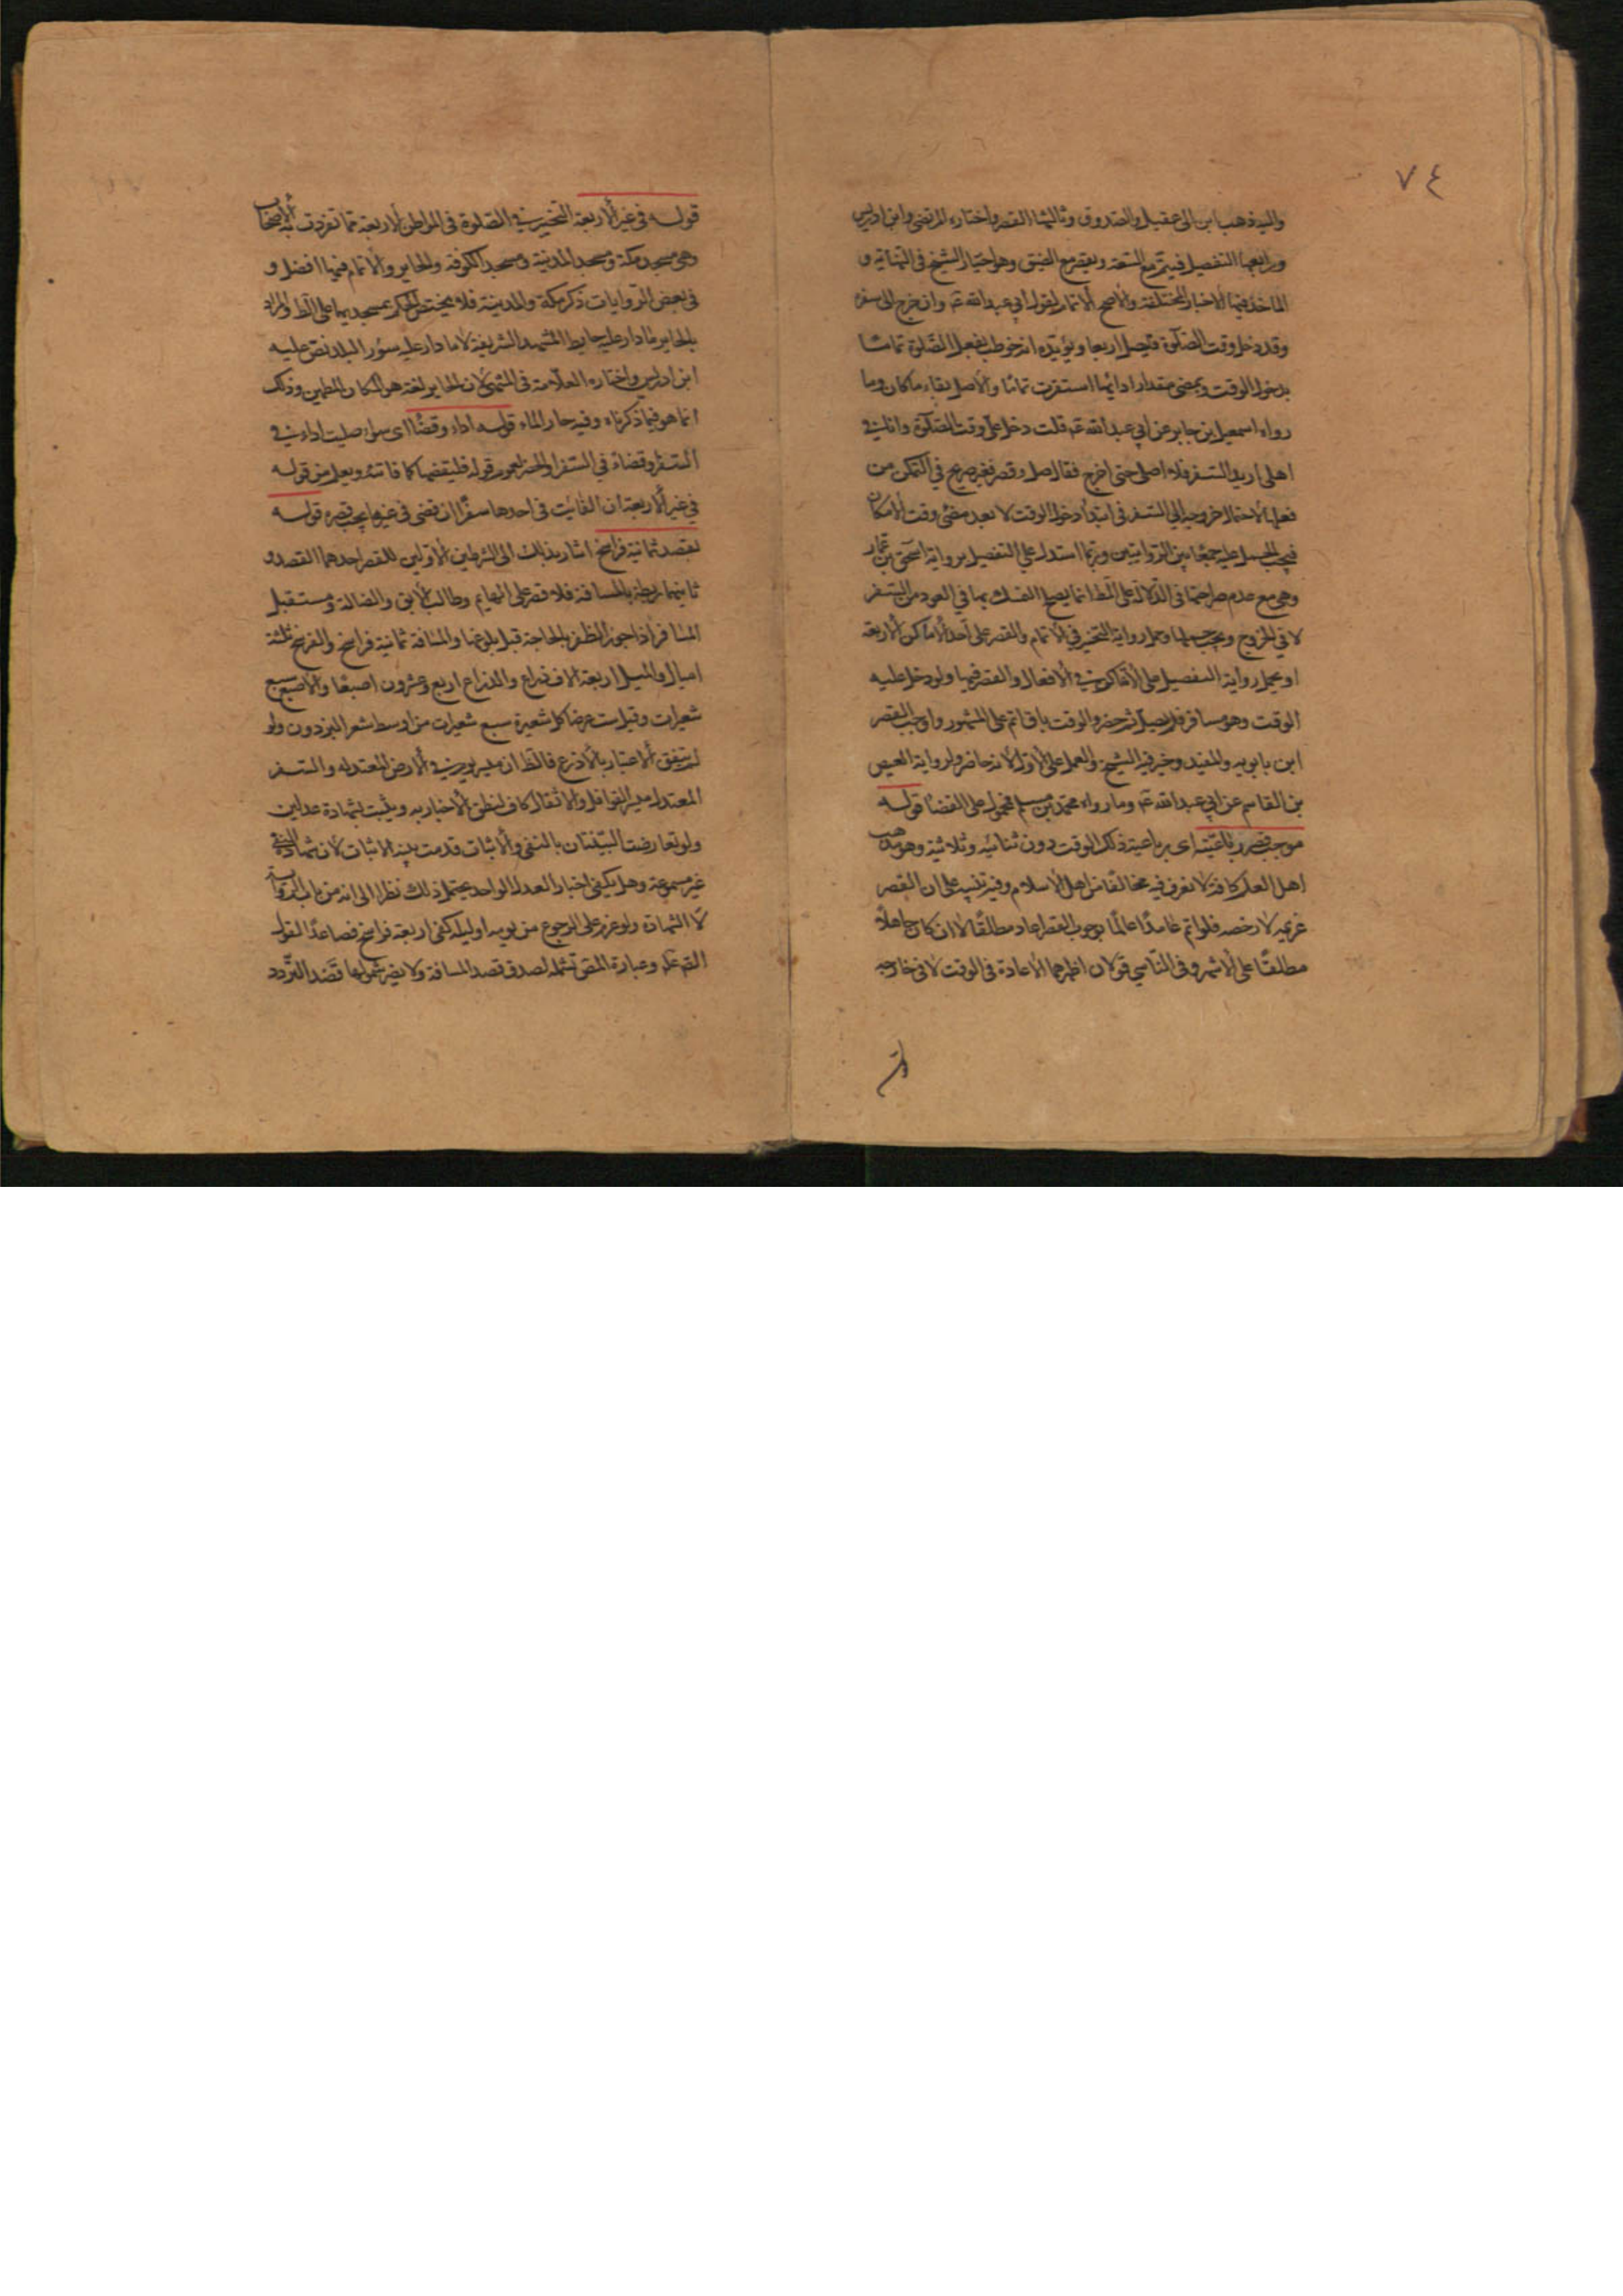 ٧٤
واليه ذهب ابن ابى عقيل والصدوق وثالثها القصر واختاره المرتضى وابن ادريس
ورابعها التفصيل فيتم مع السعة ويقصر مع الضيق وهو اختيار الشيخ فى النهاية و
الماخذ فيها الاخبار المختلفة والاصح الاتمام لقول ابي عبد الله ع وان خرج الى سفر
وقد دخل وقت الصلوة فيصل اربعا ويؤيده انه خوطب بفعل الصلوة تماما
بدخول الوقت وبمضى مقدار ادائها استقرت تماما والاصل بقاء ما كان وما
رواه اسمعيل بن جابر عن ابي عبد الله ع قلت دخل على وقت الصلوة وانا في
اهلى اريد السفر فلا اصلى حتى اخرج فقال صل وقصر فغير صريح في التمكن من
فعلها لاحتمال خروجه الى السفر فى ابتداء دخول الوقت لا بعد مضى وقت الامكان
فيجب الحمل عليه جمعا بين الروايتين وربما استدل على التفصيل برواية اسحق بن عمار
وهى مع عدم صراحتها فى الدلالة على الظ انما يصح التمسك بها في العود من السفر
لا في الخروج ويجب حملها وحمل رواية التخيير في الاتمام والقصر على احد الاماكن الاربعة
او يحمل رواية التفصيل على الافعال والقصر فيها ولو دخل عليه
الوقت وهو مسافر فلم يصل ثم حضر والوقت باق اتم على المشهور واوجب القصر
ابن بابويه والمفيد وخير فيه الشيخ والعمل على الاول لانه حاضر ولرواية العيص
بن القاسم عن ابي عبد الله ع وما رواه محمد بن مسلم محمول على القضا قوله
موجب قصر رباعيته اى رباعية ذلك الوقت دون ثنائيه وثلاثيه وهو مذهب
اهل العلم كافة لا نعرف فيه مخالفا من اهل الاسلام وفيه تنبيه على ان القصر
عزيمه لا رخصه فلو اتم عامدًا عالمًا بوجوب القصر اعاد مطلقًا لا ان كان جاهلاً
مطلقًا على الاشهر وفى الناسي قولان اظهرهما الاعادة فى الوقت لا فى خارجه
قوله فى غير الاربعة التخيير في الصلوة فى المواطن الاربعة مما تفردت به الاصحاب
وهى مسجد مكة ومسجد المدينة ومسجد الكوفة والحاير والاتمام فيها افضل و
فى بعض الروايات ذكر مكة والمدينة فلا يختص الحكم بمسجديهما على الظ والمراد
بالحاير ما دار عليه حايط المشهد الشريفة لا ما دار عليه سور البلد نص عليه
ابن ادريس واختاره العلامة فى المنتهى لان الحاير لغة هو المكان المطمئن وذلك
انما هو فيما ذكرناه وفيه حار الماء قوله اداء وقضًا اى سواء صليت اداء في
السفر او قضاء في السفر او الحضر لعموم قوله فليقضها كما فاتته ويعلم من قوله
في غير الاربعة ان الفائت فى احدها سفرًا ان قضى فى غيرها يجب قصره قوله
بقصد ثمانية فراسخ اشار بذلك الى الشرطين الاولين للقصر احدهما القصد و
ثانيهما ربطه بالمسافة فلا قصر على الهايم وطالب الابق والضالة ومستقبل
المسافر اذا جوز الظفر بالحاجة قبل بلوغها والمسافة ثمانية فراسخ والفرسخ ثلثة
اميال والميل اربعة الاف ذراع والذراع اربع وعشرون اصبعًا والاصبع سبع
شعيرات وقيل ست عرضا كل شعيرة سبع شعيرات من اوسط شعر البرذون ولو
لم يتفق الاعتبار بالاذرع فالظ ان مسير يوم في الارض المعتدله والسفر
المعتدل مسير القوافل والاثقال كاف لنطق الاخبار به ويثبت بشهادة عدلين
ولو تعارضت البينتان بالنفى والاثبات قدمت بينه الاثبات لان شهادة النفى
غير مسموعة وهل يكفى اخبار العدل الواحد يحتمل ذلك نظرا الى انه من باب الرواية
لا الشهادة ولو عزم على الرجوع من يومه او ليله كفى اربعة فراسخ فصاعدًا لقول
وعبارة المص تشمله لصدق قصد المسافة ولا يضر شمولها قصد التردد